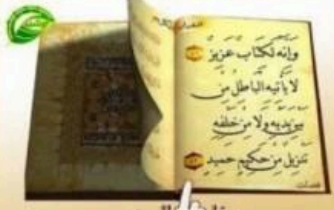 وإنه لكتاب عزيز
لا يأتيه الباطل من
بين يديه ولا من خلفه
تنزيل من حكيم حميد